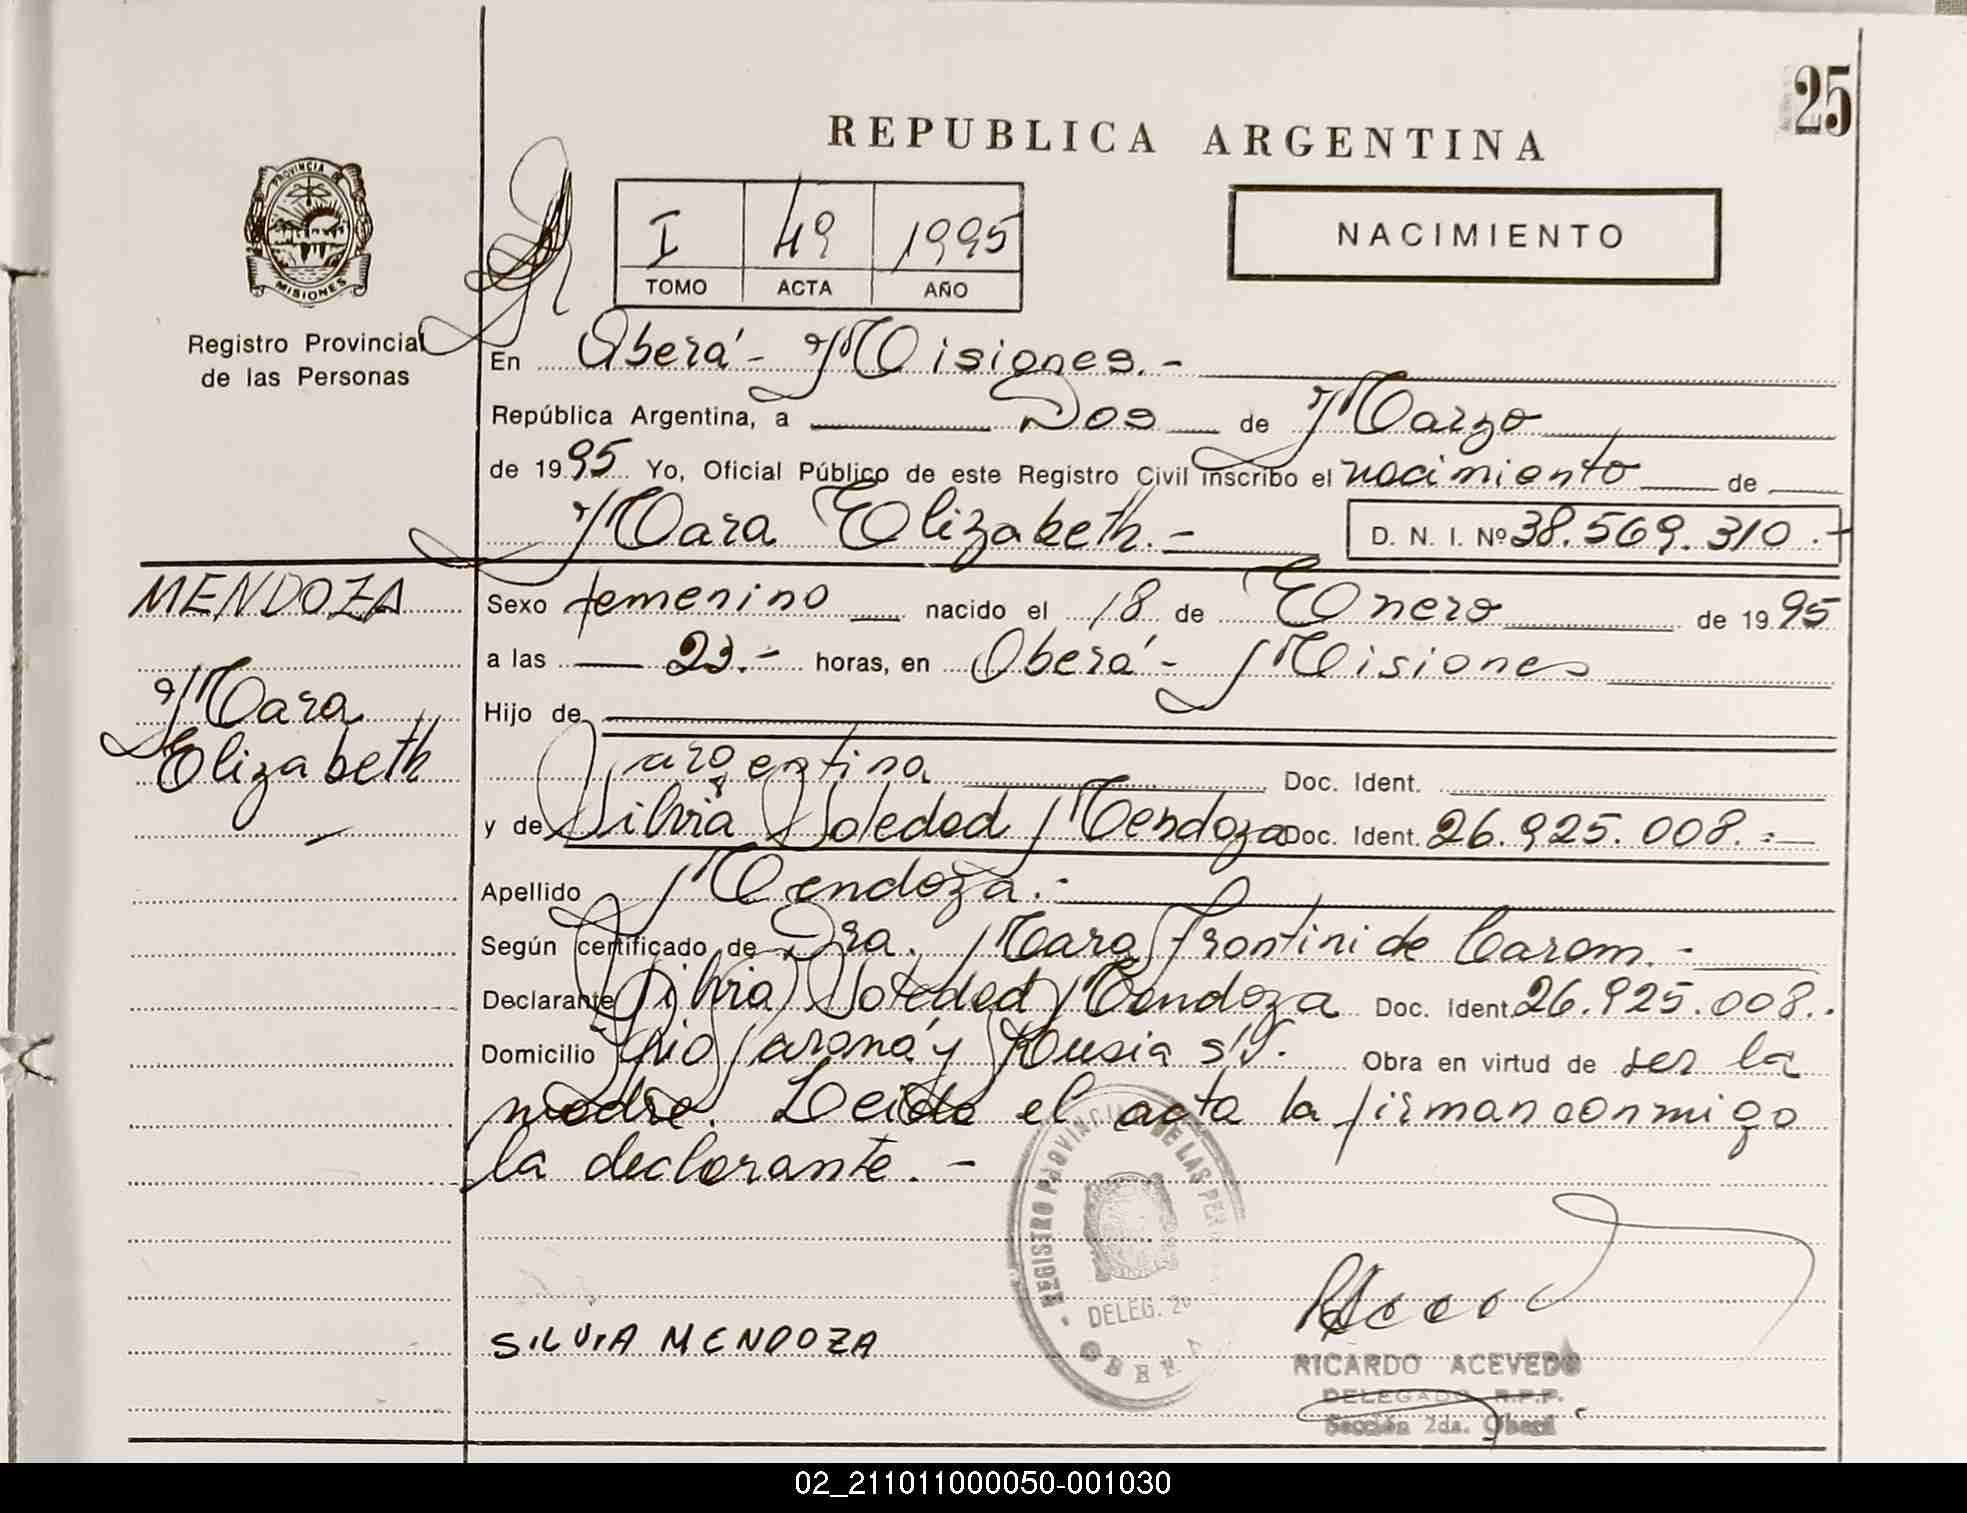 25
REPUBLICA ARGENTINA
PROVINCIA DE
MISIONES
Registro Provincial
de las Personas
I 49 1995
TOMO ACTA AÑO
NACIMIENTO
En Oberá - Misiones.-
República Argentina, a Dos de Marzo
de 1995 Yo, Oficial Público de este Registro Civil inscribo el nacimiento de
Mara Elizabeth.- D. N. I. Nº 38.569.310.-
MENDOZA
Mara
Elizabeth
Sexo femenino nacido el 18 de Enero de 1995
a las 23.- horas, en Oberá - Misiones
Hijo de
argentina Doc. Ident.
y de Silvia Soledad Mendoza Doc. Ident. 26.925.008.-
Apellido Mendoza.-
Según certificado de Dra. Mara Frontini de Carom.-
Declarante Silvia Soledad Mendoza Doc. Ident. 26.925.008..
Domicilio Paraná y Rusia s/ Obra en virtud de ser la
madre. Leida el acta la firman conmigo
la declarante.-
REGISTRO PROVINCIAL DE LAS PER
DELEG. 2
SILVIA MENDOZA
RICARDO ACEVEDO
DELEGADO R.P.P.
Sección 2da. Oberá
02_211011000050-001030